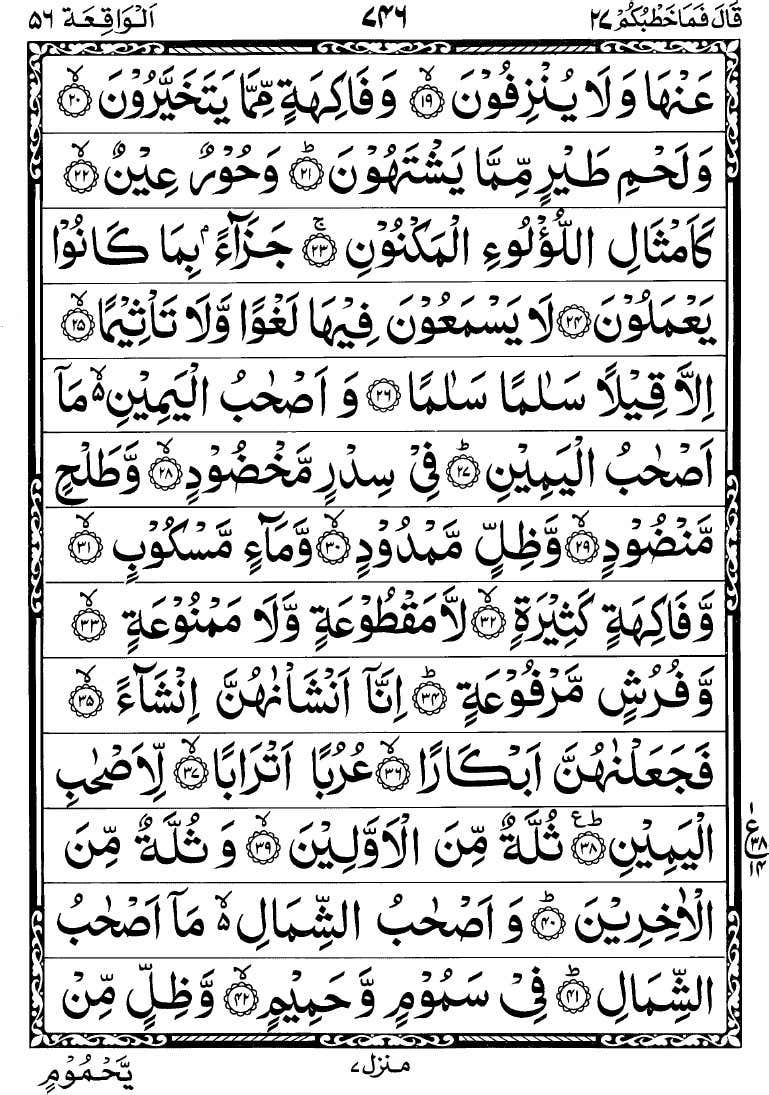 قَالَ فَمَا خَطْبُكُمْ ٢٧ ٧٤٦ اَلْوَاقِعَة ٥٦
عَنْهَا وَلَا يُنْزِفُوْنَ ۙ﴿۱۹﴾ وَفَاكِهَةٍ مِّمَّا يَتَخَيَّرُوْنَ ۙ﴿۲۰﴾
وَلَحْمِ طَيْرٍ مِّمَّا يَشْتَهُوْنَ ؕ﴿۲۱﴾ وَحُوْرٌ عِيْنٌ ۙ﴿۲۲﴾
كَاَمْثَالِ اللُّؤْلُوءِ الْمَكْنُوْنِ ۚ﴿۲۳﴾ جَزَآءًۢ بِمَا كَانُوْا
يَعْمَلُوْنَ ﴿۲۴﴾ لَا يَسْمَعُوْنَ فِيْهَا لَغْوًا وَّلَا تَاْثِيْمًا ۙ﴿۲۵﴾
اِلَّا قِيْلًا سَلٰمًا سَلٰمًا ﴿۲۶﴾ وَ اَصْحٰبُ الْيَمِيْنِ ۙ۬ مَاۤ
اَصْحٰبُ الْيَمِيْنِ ؕ﴿۲۷﴾ فِيْ سِدْرٍ مَّخْضُوْدٍ ۙ﴿۲۸﴾ وَّطَلْحٍ
مَّنْضُوْدٍ ۙ﴿۲۹﴾ وَّظِلٍّ مَّمْدُوْدٍ ۙ﴿۳۰﴾ وَّمَآءٍ مَّسْكُوْبٍ ۙ﴿۳۱﴾
وَّفَاكِهَةٍ كَثِيْرَةٍ ۙ﴿۳۲﴾ لَّا مَقْطُوْعَةٍ وَّلَا مَمْنُوْعَةٍ ۙ﴿۳۳﴾
وَّفُرُشٍ مَّرْفُوْعَةٍ ؕ﴿۳۴﴾ اِنَّاۤ اَنْشَاْنٰهُنَّ اِنْشَآءً ۙ﴿۳۵﴾
فَجَعَلْنٰهُنَّ اَبْكَارًا ۙ﴿۳۶﴾ عُرُبًا اَتْرَابًا ۙ﴿۳۷﴾ لِّاَصْحٰبِ
الْيَمِيْنِ ؕ﴿۳۸﴾ ثُلَّةٌ مِّنَ الْاَوَّلِيْنَ ۙ﴿۳۹﴾ وَ ثُلَّةٌ مِّنَ
ع ٣٨ ١٤
الْاٰخِرِيْنَ ؕ﴿۴۰﴾ وَ اَصْحٰبُ الشِّمَالِ ۙ۬ مَاۤ اَصْحٰبُ
الشِّمَالِ ؕ﴿۴۱﴾ فِيْ سَمُوْمٍ وَّ حَمِيْمٍ ۙ﴿۴۲﴾ وَّظِلٍّ مِّنْ
منزل ٧
يَّحْمُوْمٍ